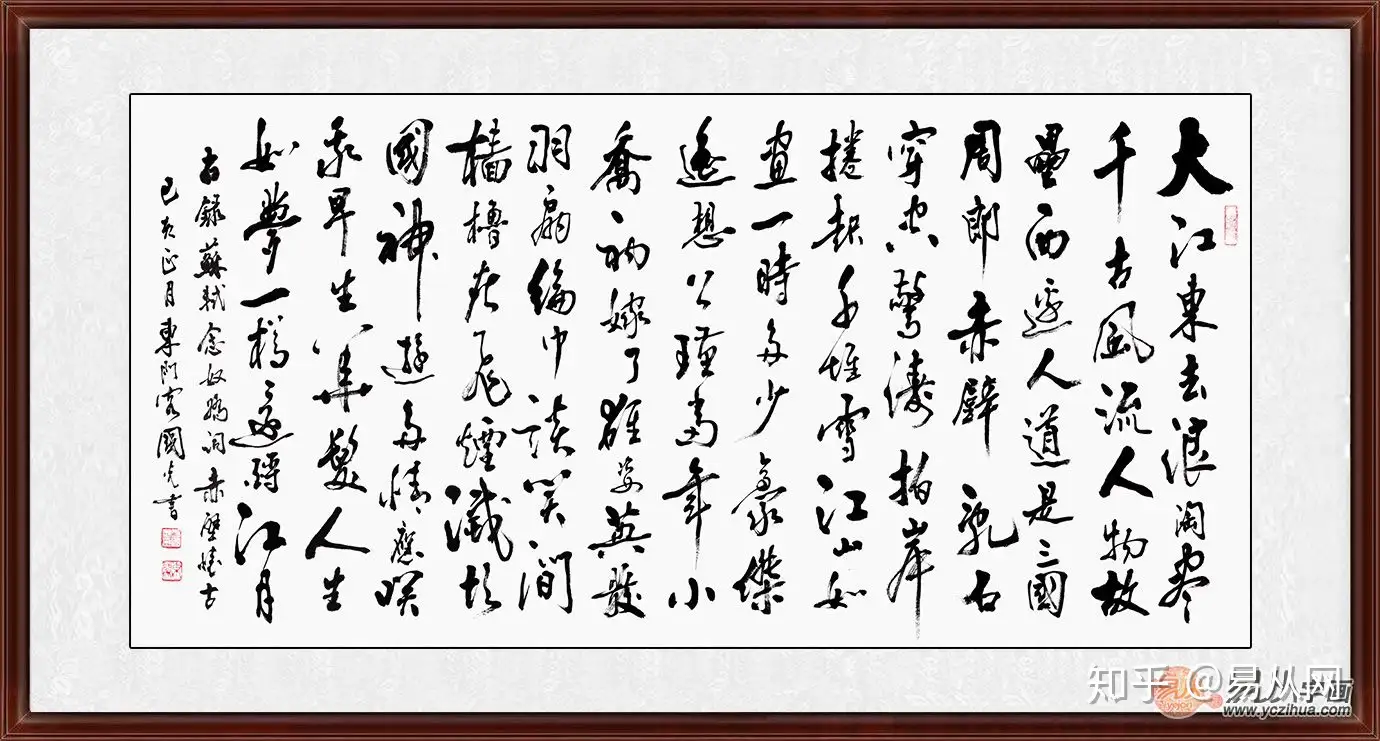 大江東去浪淘尽
千古風流人物故
壘西邊人道是三國
周郎赤壁亂石
穿空驚濤拍岸
捲起千堆雪江山如
畫一時多少豪傑
遙想公瑾當年小
喬初嫁了雄姿英發
羽扇綸巾談笑間
檣櫓灰飛煙滅故
國神遊多情應笑
我早生華髮人生
如夢一樽還酹江月
右錄蘇軾念奴嬌詞赤壁懷古
己亥正月東阿國光書
知乎 @易从网
字画
www.yczihua.com